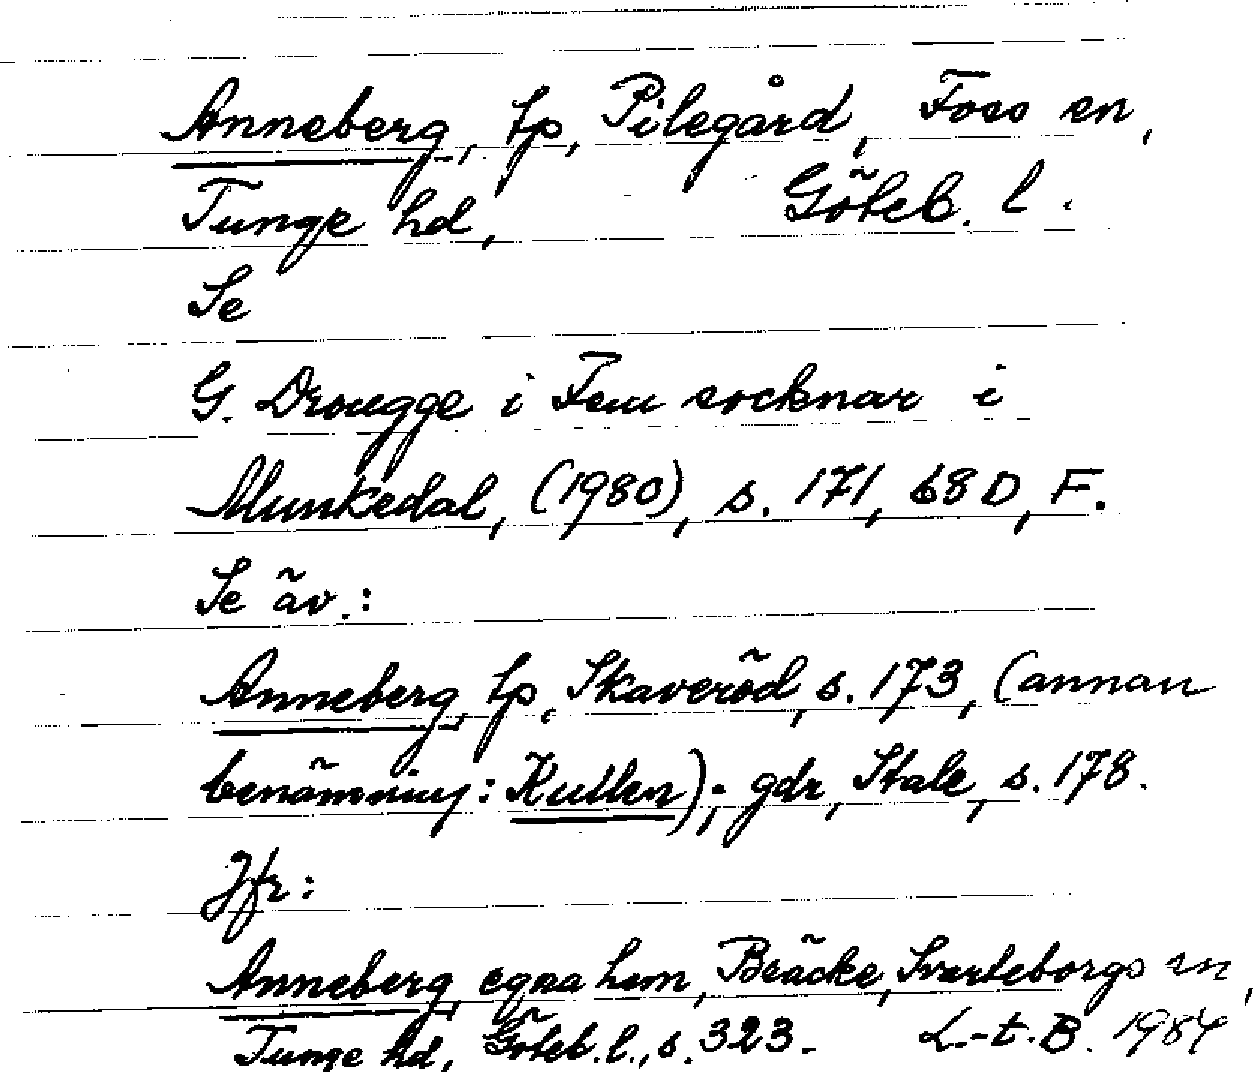 Anneberg, tp, Pilegård, Foss sn,
Tunge hd, Göteb. l.
Se
G. Drougge i Fem socknar i
Munkedal, (1980), s. 171, 68 D, F.
Se äv.:
Anneberg, tp, Skaveröd, s. 173, (annan
benämning: Kullen); gdr, Stale, s. 178.
Jfr:
Anneberg, egna hem, Bräcke, Svarteborgs sn,
Tunge hd, Göteb. l., s. 323. L-t. B. 1984